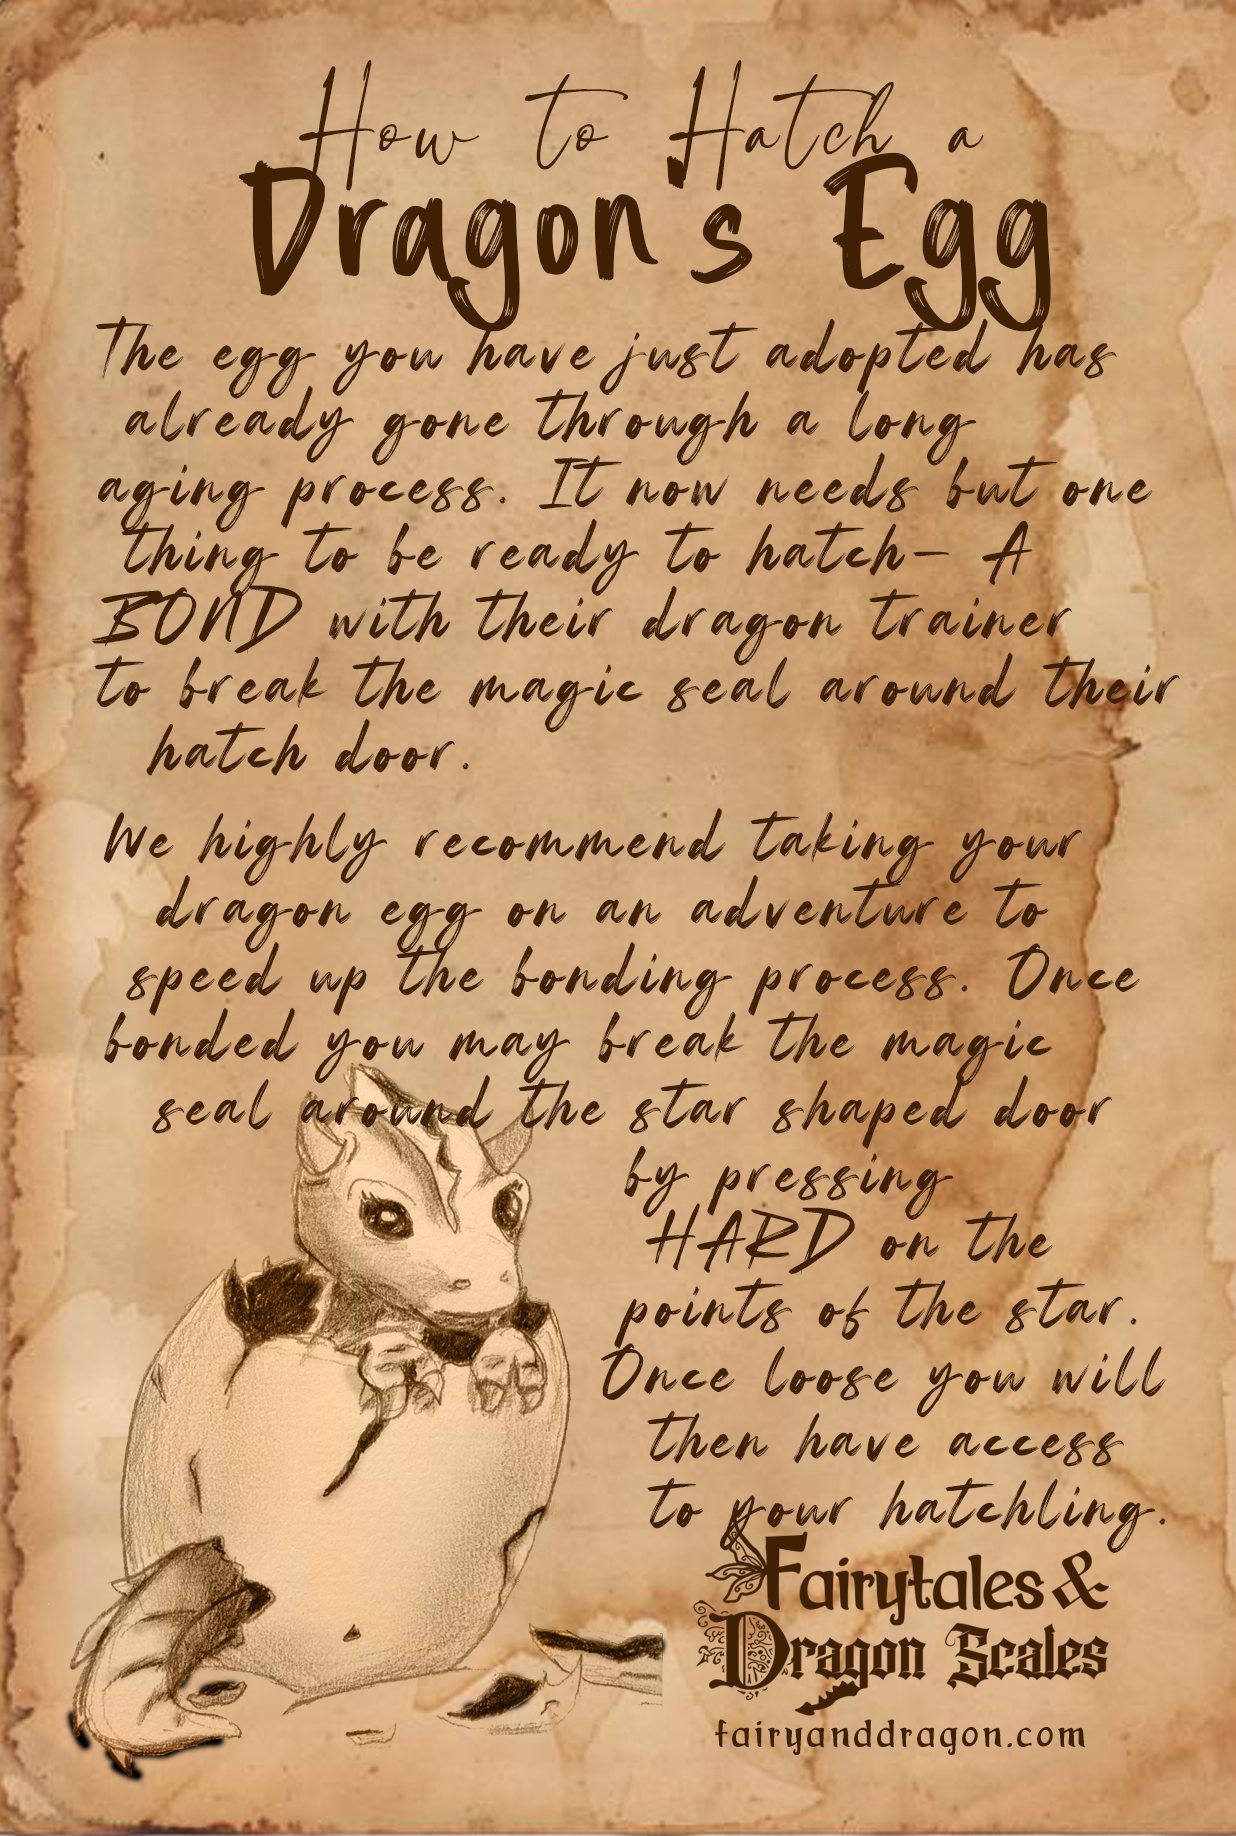 How to Hatch a
Dragon's Egg
The egg you have just adopted has
already gone through a long
aging process. It now needs but one
thing to be ready to hatch- A
BOND with their dragon trainer
to break the magic seal around their
hatch door.
We highly recommend taking your
dragon egg on an adventure to
speed up the bonding process. Once
bonded you may break the magic
seal around the star shaped door
by pressing
HARD on the
points of the star.
Once loose you will
then have access
to your hatchling.
Fairytales &
Dragon Scales
fairyanddragon.com